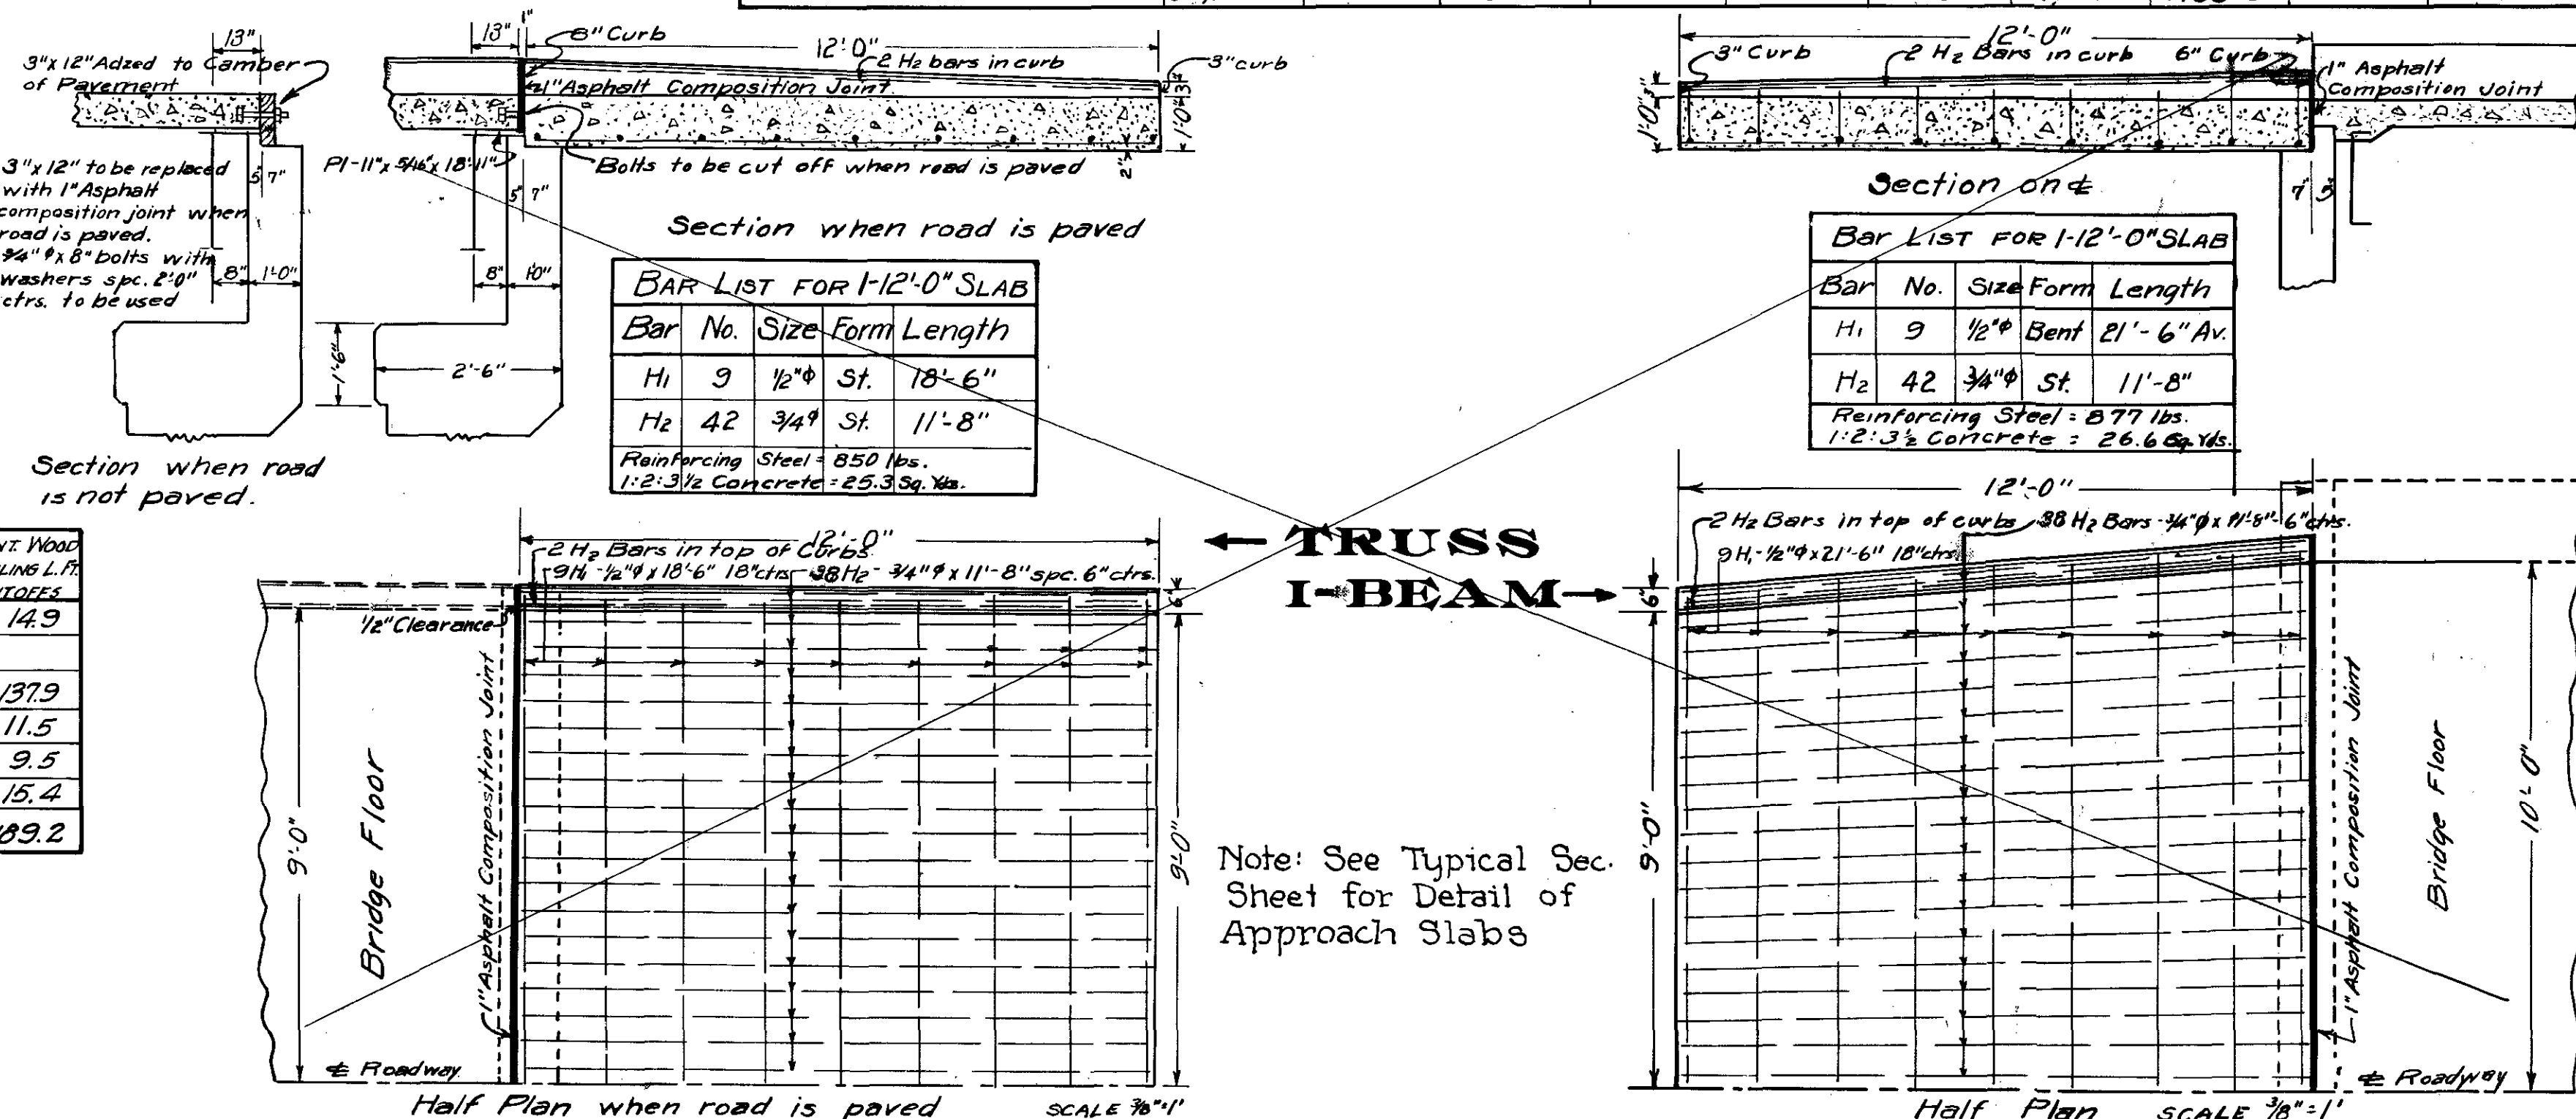 13"
3"x 12" Adzed to Camber
of Pavement
3"x 12" to be replaced
with 1" Asphalt
composition joint when
road is paved.
3/4" φ x 8" bolts with
washers spc. 2'-0"
ctrs. to be used
5" 7"
8" 1'-0"
Section when road
is not paved.
13" 1"
8" Curb
12'-0"
2 H2 bars in curb
3" curb
1" Asphalt Composition Joint
1'-0" 3"
2"
Pl-11"x 5/16"x 18'-11"
Bolts to be cut off when road is paved
5" 7"
8" 1'-0"
1'-6"
2'-6"
Section when road is paved
BAR LIST FOR 1-12'-0" SLAB
Bar No. Size Form Length
H1 9 1/2"φ St. 18'-6"
H2 42 3/4φ St. 11'-8"
Reinforcing Steel = 850 lbs.
1:2:3 1/2 Concrete = 25.3 Sq. Yds.
12'-0"
3" Curb
2 H2 Bars in curb
6" Curb
1" Asphalt
Composition Joint
1'-0" 3"
Section on ℄
7" 5"
Bar LIST FOR 1-12'-0" SLAB
Bar No. Size Form Length
H1 9 1/2"φ Bent 21'-6" Av.
H2 42 3/4"φ St. 11'-8"
Reinforcing Steel = 877 lbs.
1:2:3 1/2 Concrete = 26.6 Sq. Yds.
WOOD
L.FT.
14.9
137.9
11.5
9.5
15.4
189.2
12'-0"
2 H2 Bars in top of Curbs
9H1-1/2"φ x 18'-6" 18"ctrs
38 H2 - 3/4"φ x 11'-8" spc. 6" ctrs.
6"
1/2" Clearance
9'-0"
Bridge Floor
1" Asphalt Composition Joint
9'-0"
℄ Roadway
Half Plan when road is paved
SCALE 3/8"=1'
← TRUSS
I-BEAM →
Note: See Typical Sec.
Sheet for Detail of
Approach Slabs
12'-0"
2 H2 Bars in top of curbs
38 H2 Bars-3/4"φ x 11'-8"-6"ctrs.
9H1-1/2"φ x 21'-6" 18"ctrs
6"
9'-0"
1" Asphalt Composition Joint
Bridge Floor
10'-0"
℄ Roadway
Half Plan
SCALE 3/8"=1'